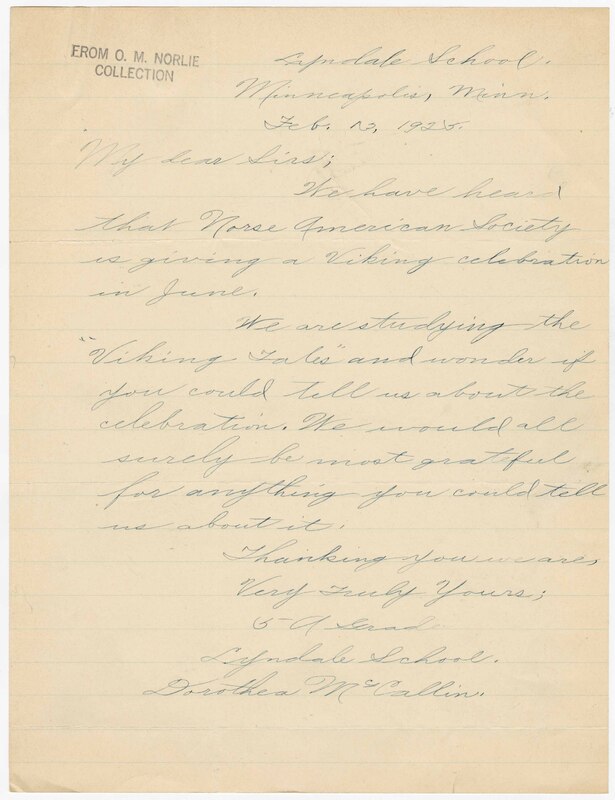 FROM O. M. NORLIE
COLLECTION
Lyndale School.
Minneapolis, Minn.
Feb. 12, 1925.
My dear Sirs;
We have heard
that Norse American Society
is giving a Viking celebration
in June.
We are studying the
"Viking Tales" and wonder if
you could tell us about the
celebration. We would all
surely be most grateful
for anything you could tell
us about it.
Thanking you we are,
Very Truly Yours;
5 A Grade
Lyndale School.
Dorothea McCallin.